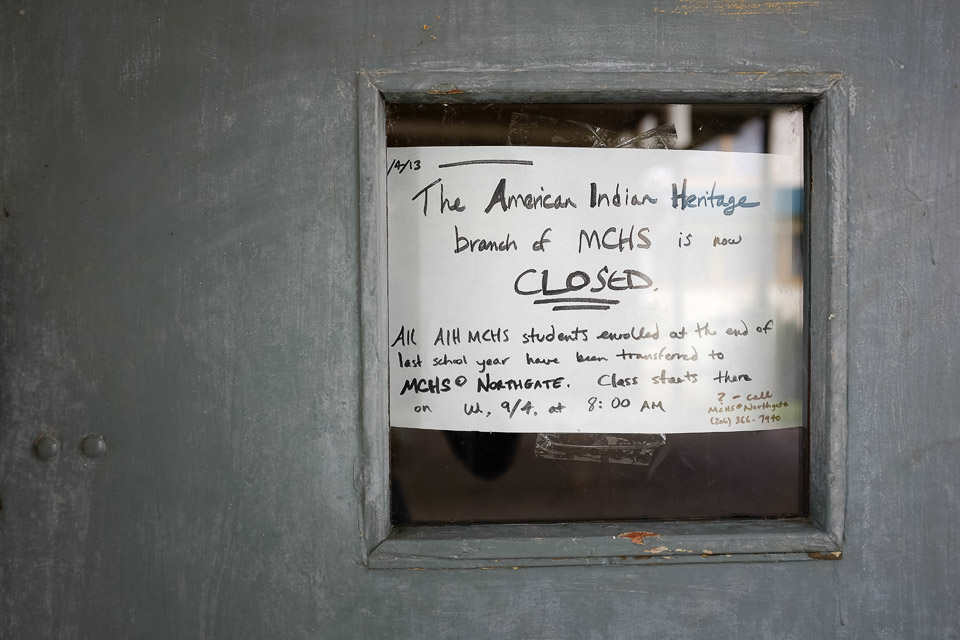 /4/13
The American Indian Heritage
branch of MCHS is now
CLOSED.
All AIH MCHS students enrolled at the end of
last school year have been transferred to
MCHS @ NORTHGATE. Class starts there
on W., 9/4, at 8:00 AM
? - call
MCHS@Northgate
(206) 366-7940